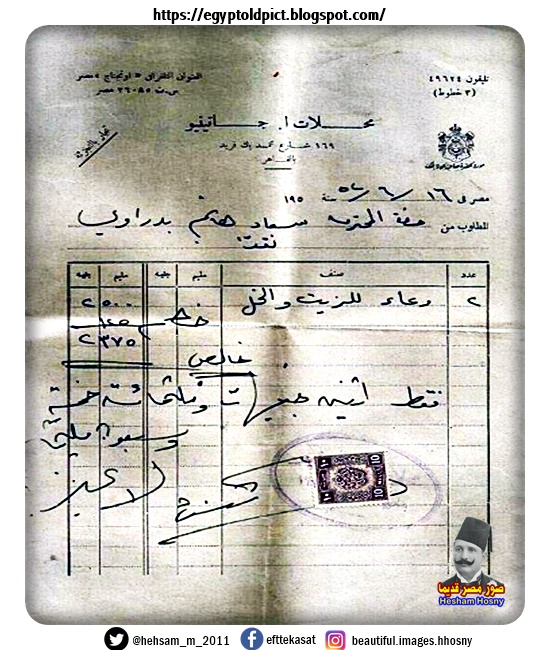 https://egyptoldpict.blogspot.com/
تليفون ٤٩٦٢٤
(٣ خطوط)
العنوان التلغرافى
مصر
س.ت ٣٦٠٨٥ مصر
محلات ا. جاتينيو
١٦٩ شارع محمد بك فريد
بالقاهرة
مصر فى ١٦ / ٦ / ٥٢ سنة ١٩٥
المطلوب من حضرة المحترمة سعاد هانم بدراوي
نقدا
عدد صنف مليم جنيه مليم جنيه
٢ وعاء للزيت والخل ٢٥٠٠
خصم ١٢٥
٢٣٧٥
خالص
فقط اثنين جنيهات وثلثمائة خمسة
وسبعون مليما
لا غير
10 10
صور مصر قديما
Hesham Hosny
@hehsam_m_2011 efttekasat beautiful.images.hhosny